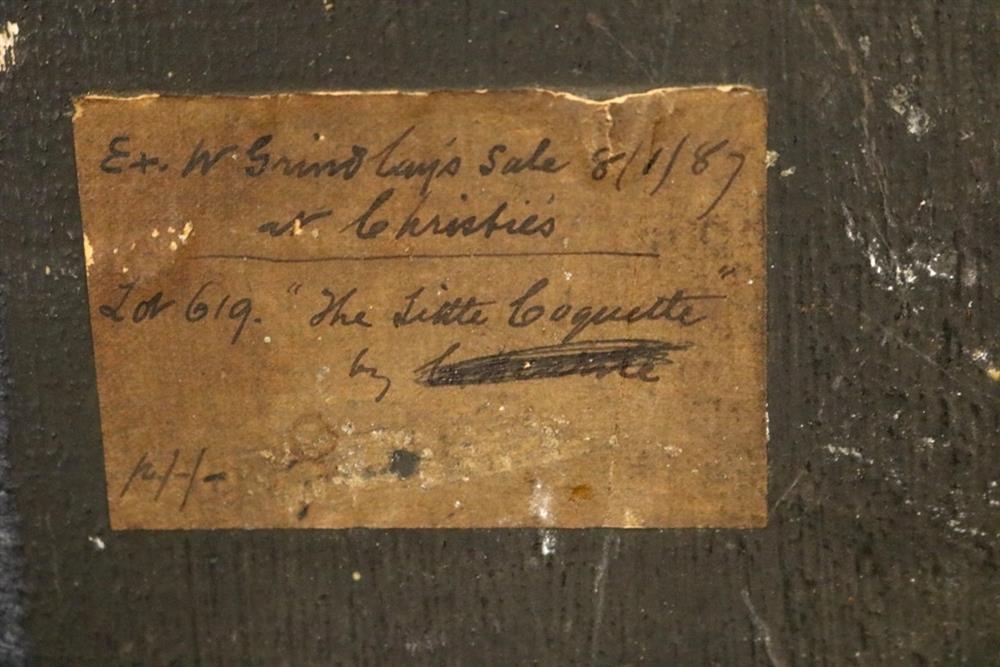 Ex. W Grindlay's Sale 8/1/87
at Christie's
Lot 619. "The Little Coquette"
by